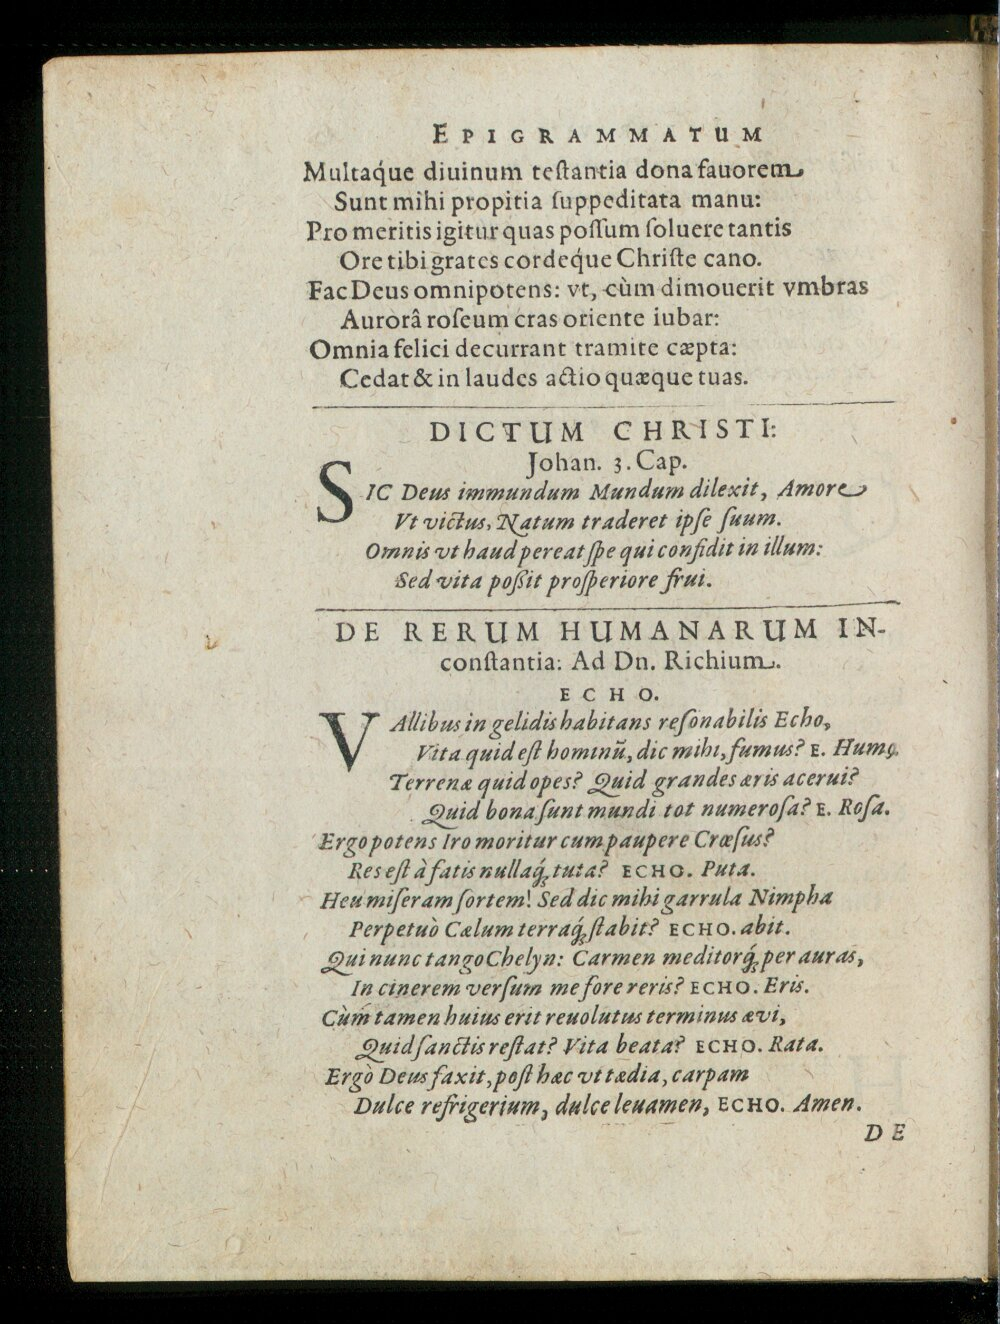 EPIGRAMMATUM
Multaq́ue diuinum teſtantia dona fauorem
Sunt mihi propitia ſuppeditata manu:
Pro meritis igitur quas poſſum ſoluere tantis
Ore tibi grates cordeq́ue Chriſte cano.
Fac Deus omnipotens: vt, cùm dimouerit vmbras
Aurorâ roſeum cras oriente iubar:
Omnia felici decurrant tramite cæpta:
Cedat & in laudes actio quæque tuas.
DICTUM CHRISTI:
Johan. 3. Cap.
SIC Deus immundum Mundum dilexit, Amore
Vt victus, Natum traderet ipſe ſuum.
Omnis vt haud pereat ſpe qui confidit in illum:
Sed vita poßit proſperiore frui.
DE RERUM HUMANARUM IN-
conſtantia: Ad Dn. Richium.
ECHO.
VAllibus in gelidis habitans reſonabilis Echo,
Vita quid eſt hominũ, dic mihi, fumus? E. Humꝰ.
Terrenæ quid opes? Quid grandes æris acerui?
Quid bona ſunt mundi tot numeroſa? E. Roſa.
Ergo potens Iro moritur cum paupere Cræſus?
Res eſt à fatis nullaq́; tuta? ECHO. Puta.
Heu miſeram ſortem! Sed dic mihi garrula Nimpha
Perpetuò Cælum terraq́; ſtabit? ECHO. abit.
Qui nunc tango Chelyn: Carmen meditorq́; per auras,
In cinerem verſum me fore reris? ECHO. Eris.
Cùm tamen huius erit reuolutus terminus ævi,
Quid ſanctis reſtat? Vita beata? ECHO. Rata.
Ergò Deus faxit, poſt hæc vt tædia, carpam
Dulce refrigerium, dulce leuamen, ECHO. Amen.
DE